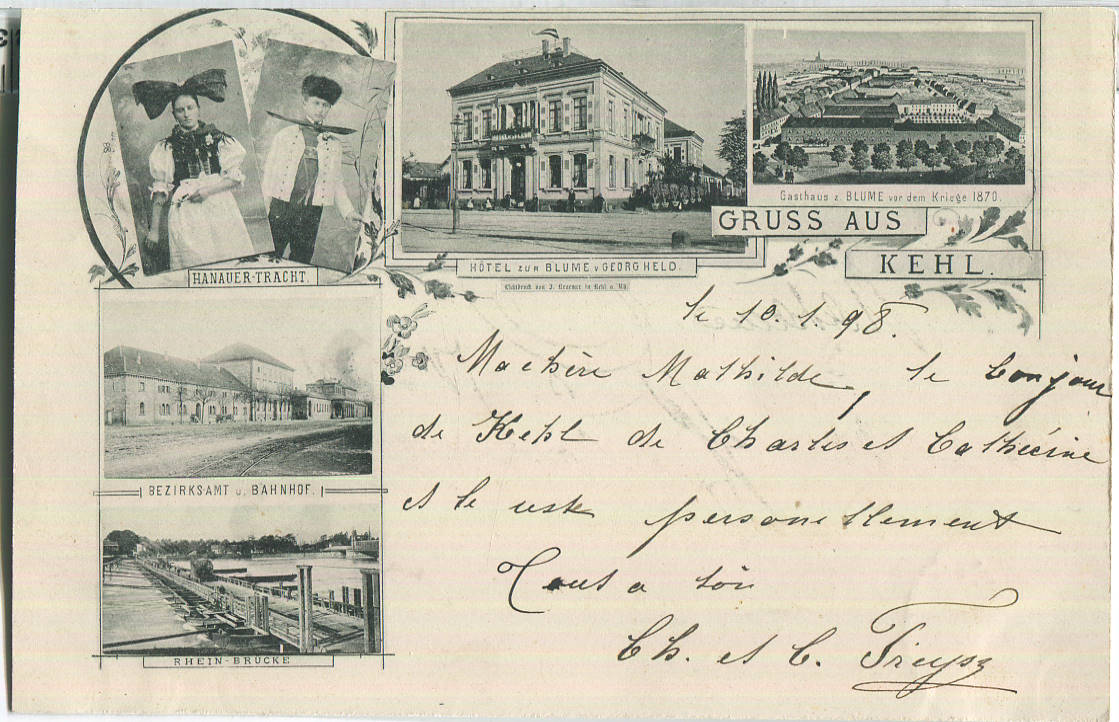 Gasthaus z. BLUME vor dem Kriege 1870.
GRUSS AUS
KEHL.
HANAUER-TRACHT.
HÔTEL ZUR BLUME v. GEORG HELD.
Lichtdruck von J. Kraemer in Kehl a. Rh.
BEZIRKSAMT u. BAHNHOF.
RHEIN-BRÜCKE
le 10.1.98.
Ma chère Mathilde, le bonjour
de Kehl de Charles et Cathérine
et le reste personellement
Tout a toi
Ch. et C.